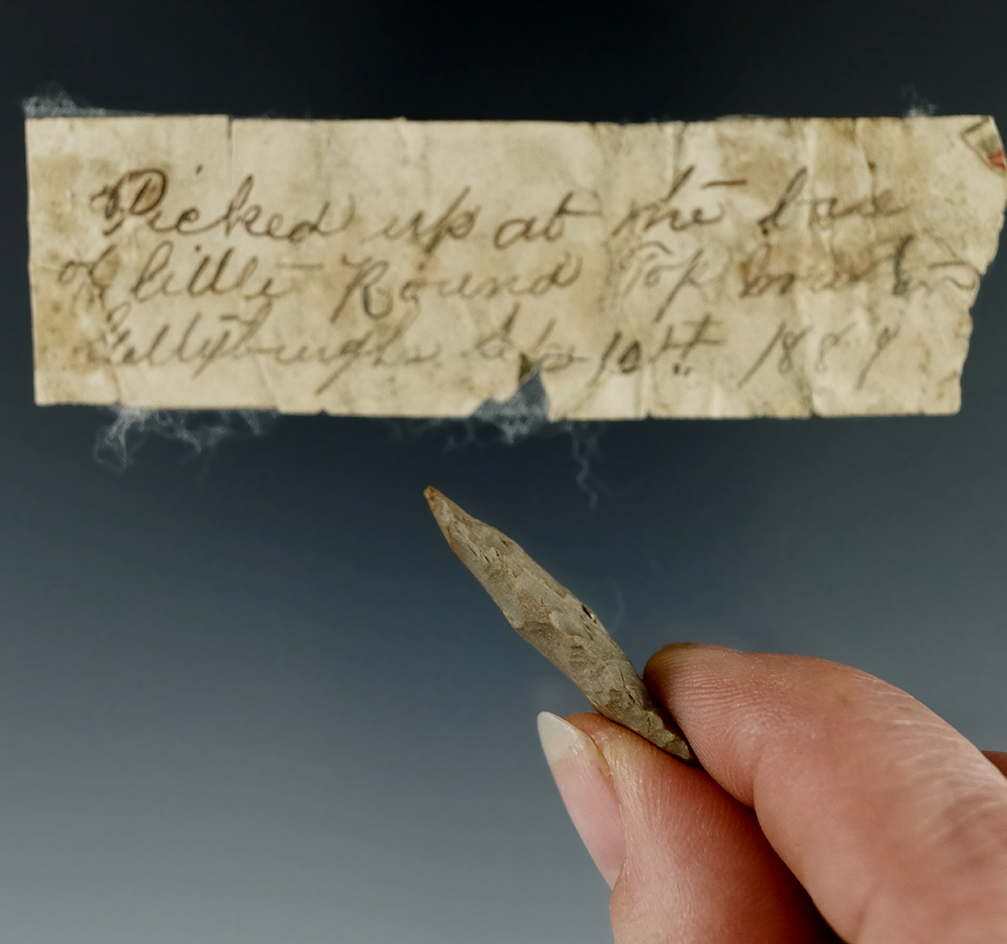 Picked up at the bas
of little Round Top
Gettysburgh Sep 10th 1889